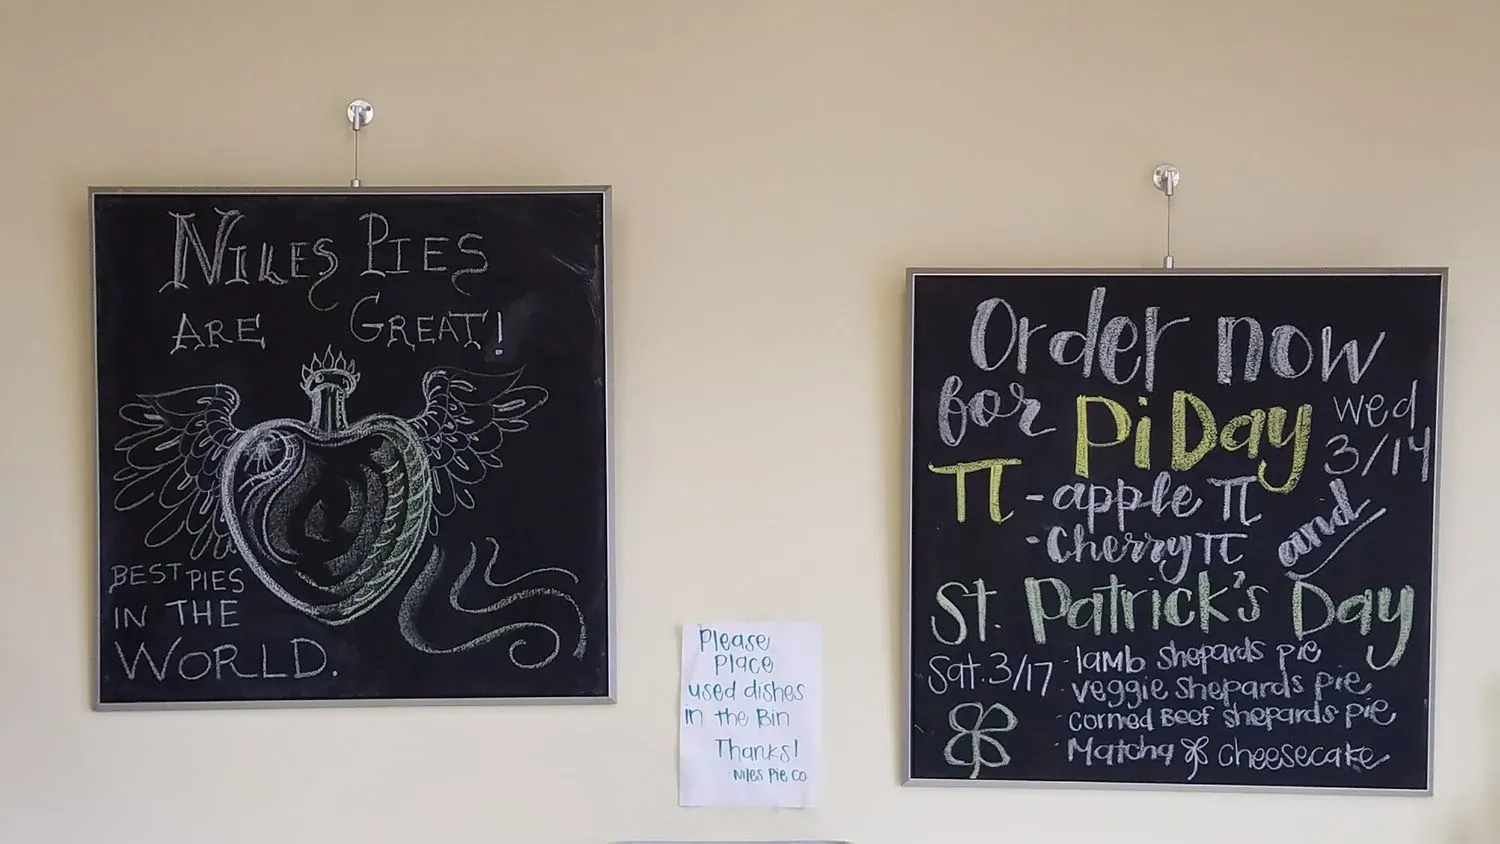 NILES PIES
ARE GREAT!
BEST PIES
IN THE
WORLD.
Please
Place
used dishes
in the Bin
Thanks!
Niles Pie Co
Order now
for Pi Day wed
3/14
π - apple π
- Cherry π and
St. Patrick's Day
Sat. 3/17 · lamb shepards pie
· veggie shepards pie
· corned Beef shepards pie
· Matcha cheesecake